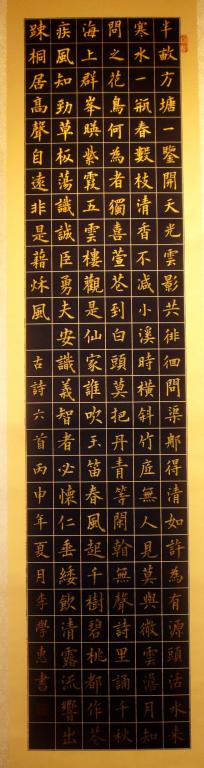 半畝方塘一鑒開天光雲影共徘徊問渠那得清如許為有源頭活水来
寒水一瓶春數枝清香不減小溪時橫斜竹底無人見莫與微雲澹月知
問之花鳥何為者獨喜萱花到白頭莫把丹青等閑看無聲詩里誦千秋
海上群峯映紫霞五雲樓觀是仙家誰吹玉笛春風起千樹碧桃都作花
疾風知勁草板蕩識誠臣勇夫安識義智者必懷仁垂緌飲清露流響出
踈桐居高聲自遠非是藉秌風 古詩六首丙申年夏月李學惠書